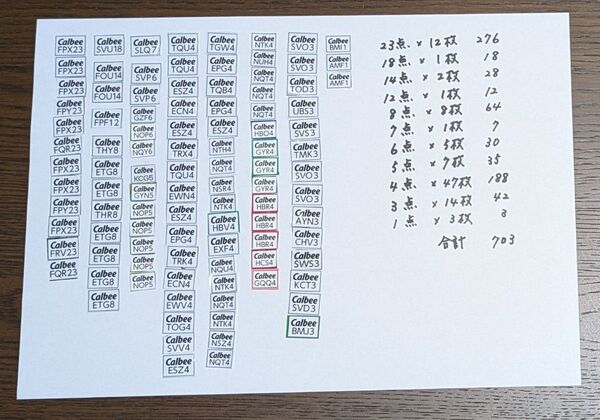 Calbee
FPX23
Calbee
FPX23
Calbee
FPX23
Calbee
FPY23
Calbee
FPX23
Calbee
FQR23
Calbee
FPX23
Calbee
FPX23
Calbee
FPY23
Calbee
FPX23
Calbee
FRV23
Calbee
FQR23
Calbee
SVU18
Calbee
FOU14
Calbee
FOU14
Calbee
FPF12
Calbee
THY8
Calbee
ETG8
Calbee
ETG8
Calbee
THR8
Calbee
ETG8
Calbee
ETG8
Calbee
ETG8
Calbee
ETG8
Calbee
SLQ7
Calbee
SVP6
Calbee
SVP6
Calbee
GZF6
Calbee
NOP6
Calbee
NQY6
Calbee
KCG5
Calbee
GYN5
Calbee
NOP5
Calbee
NOP5
Calbee
NOP5
Calbee
NOP5
Calbee
NOP5
Calbee
TQU4
Calbee
TQU4
Calbee
ESZ4
Calbee
ECN4
Calbee
ESZ4
Calbee
TRX4
Calbee
TQU4
Calbee
EWN4
Calbee
ESZ4
Calbee
EPG4
Calbee
TRK4
Calbee
ECN4
Calbee
EWV4
Calbee
TOG4
Calbee
SVV4
Calbee
ESZ4
Calbee
TGW4
Calbee
EPG4
Calbee
TQB4
Calbee
EPG4
Calbee
ESZ4
Calbee
NTH4
Calbee
NQT4
Calbee
NSR4
Calbee
NTK4
Calbee
HBV4
Calbee
EXF4
Calbee
NQU4
Calbee
NTK4
Calbee
NQT4
Calbee
NTK4
Calbee
NSZ4
Calbee
NQT4
Calbee
NTK4
Calbee
NUH4
Calbee
NQT4
Calbee
NQT4
Calbee
NQT4
Calbee
HBO4
Calbee
GYR4
Calbee
GYR4
Calbee
GYR4
Calbee
HBR4
Calbee
HBR4
Calbee
HBR4
Calbee
HCS4
Calbee
GQQ4
Calbee
SVO3
Calbee
SVO3
Calbee
TOD3
Calbee
UBS3
Calbee
SVS3
Calbee
TMK3
Calbee
SVO3
Calbee
SVO3
Calbee
AYN3
Calbee
CHV3
Calbee
SWS3
Calbee
KCT3
Calbee
SVD3
Calbee
BMJ3
Calbee
BMI1
Calbee
AMF1
Calbee
AMF1
23点 × 12枚 276
18点 × 1枚 18
14点 × 2枚 28
12点 × 1枚 12
8点 × 8枚 64
7点 × 1枚 7
6点 × 5枚 30
5点 × 7枚 35
4点 × 47枚 188
3点 × 14枚 42
1点 × 3枚 3
合計 703